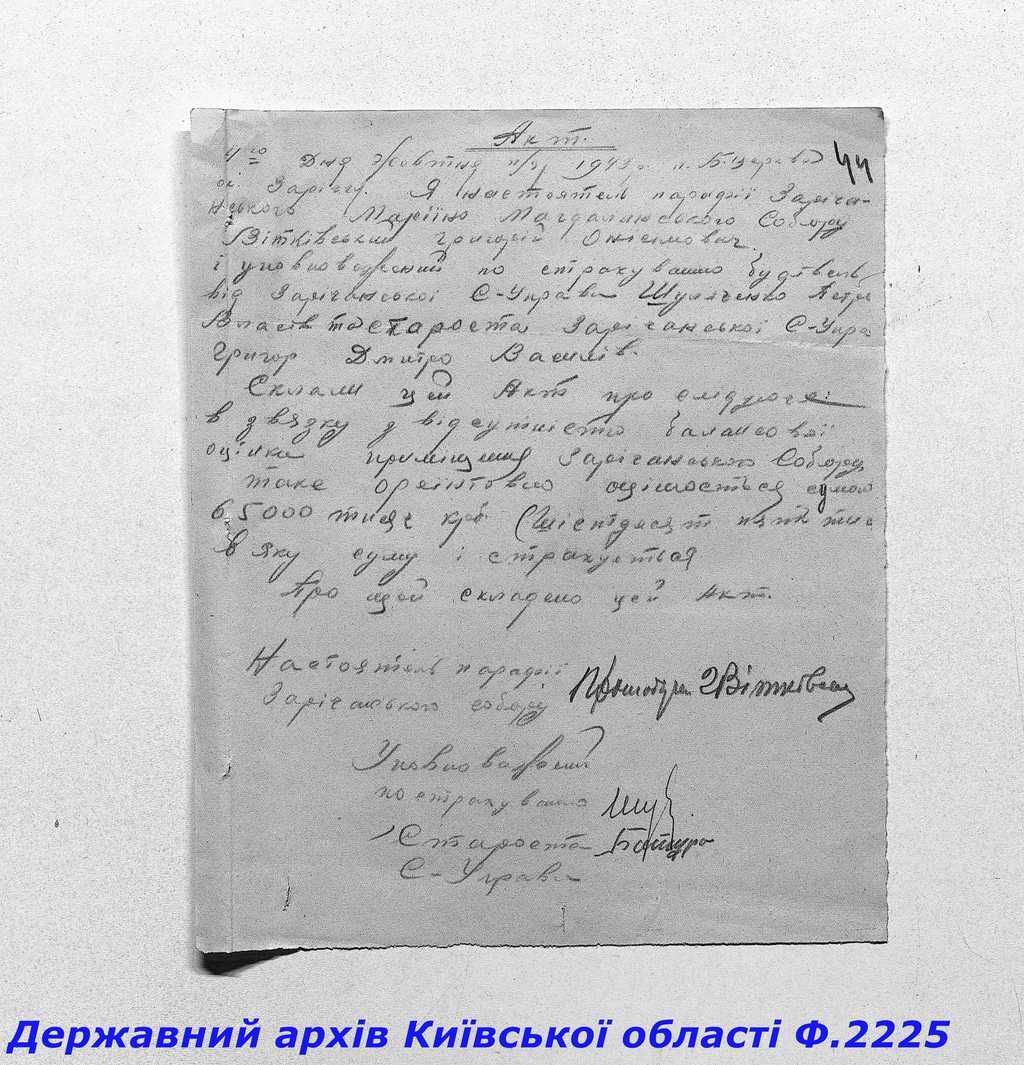 Акт.
44
4го Дня Жовтня м/ця 1943 р. м. Б.Церква
ок. Заріччя. Я настоятель парафії Заріча-
нського Маріїно Магдалинського Собору
Вітківський Григорій Онисимович.
і уповноважений по страхуванню будівель
від Зарічанської С-Управи Шуляченко Петро
Власів та староста Зарічанської С-Упра
Григор Дмитро Василів.
Склали цей Акт про слідуюче:
в звязку з відсутністю балансової
оцінки приміщення Зарічанського Собору,
таке орєінтовно оцінюється сумою
65000 тисяч крб. (Шістдесят пять тис
в яку суму і страхується
Про що й складено цей Акт.
Настоятель парафії
Зарічанського собору Вітківськ
Уповноважений
по страхуванню
Староста
С-Управи
Державний архів Київської області Ф.2225